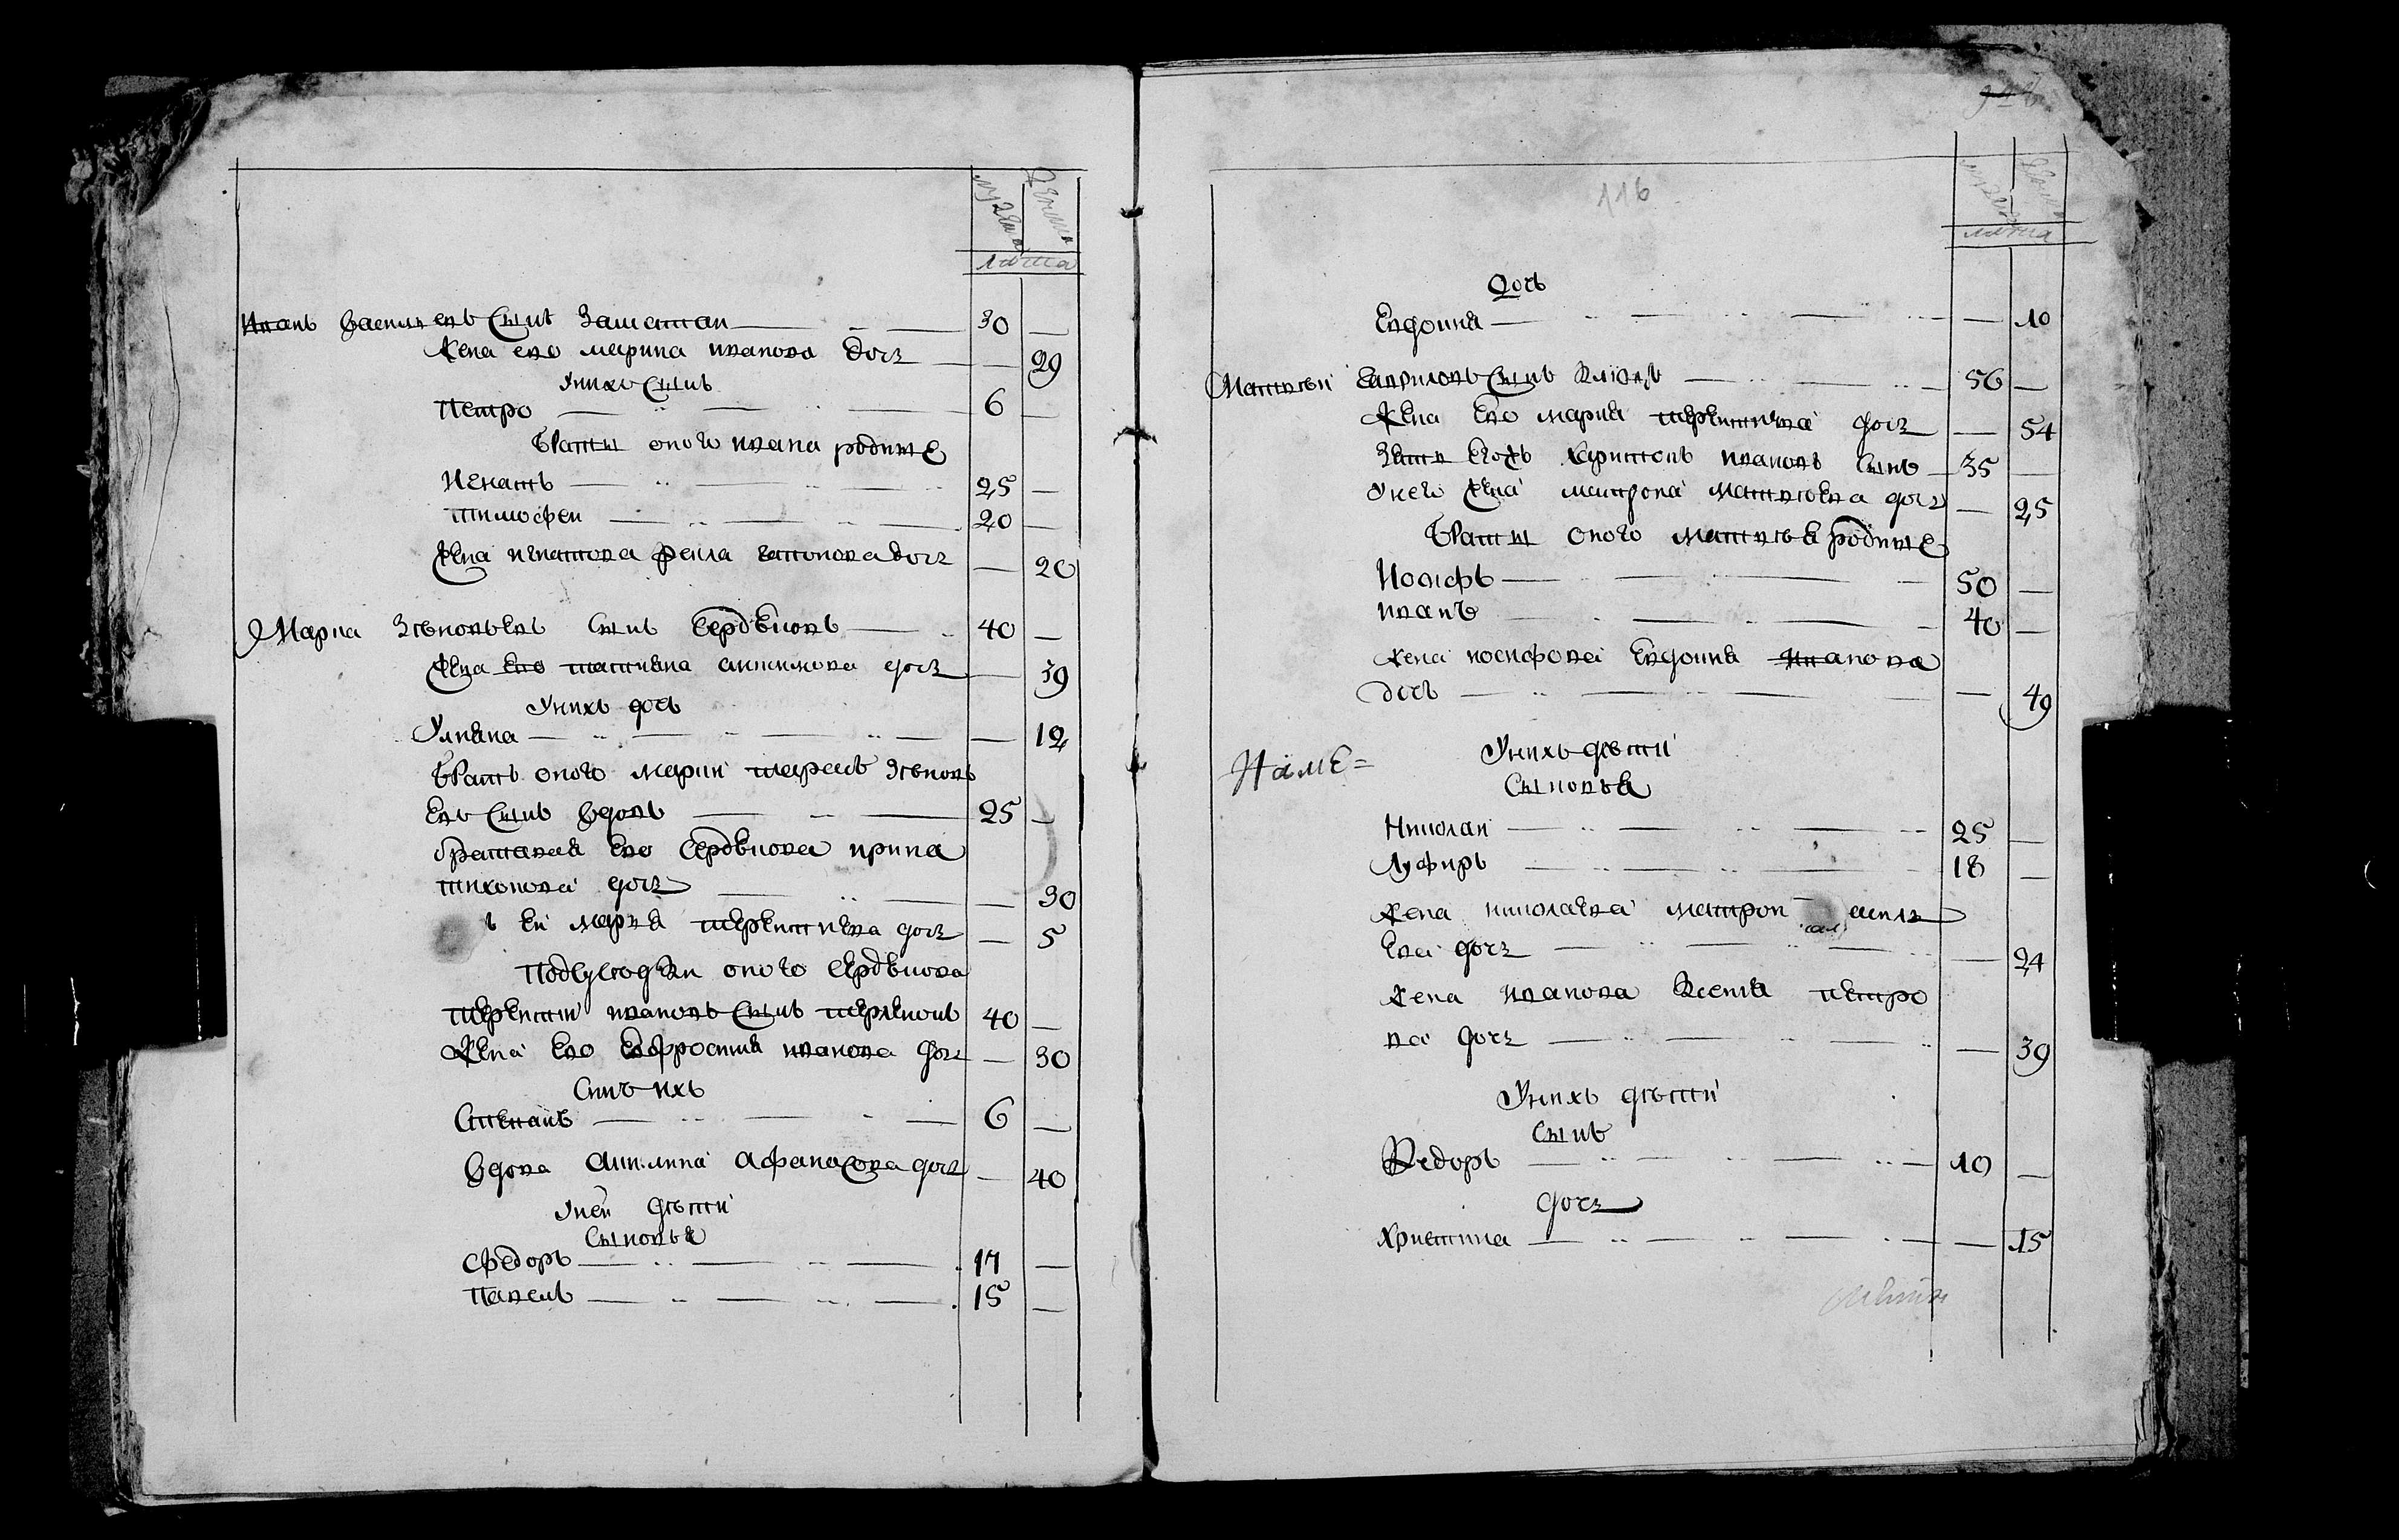 мужеска женска
лѣта
Иванъ Васильевъ сынъ Зашатан 30 —
Жена ево Марина Иванова дочь — 29
У нихъ сынъ
Петро 6 —
Браты оного Ивана родные
Игнатъ 25 —
Тимофеи 20 —
Жена Игнатова Фекла Антонова дочь — 20
Марко Зѣновьевъ сынъ Сердѣковъ 40 —
Жена ево Татияна Акимова дочь — 39
У нихъ дочь
Улияна — 12
Братъ оного Марка Тарасъ Зѣновь
евъ сынъ вдовъ 25 —
братовая ево Сердѣкова Ирина
Тихонова дочь — 30
ей Мария Терентиева дочь — 5
Подсуседки оного Сердѣкова
Терентий Ивановъ сынъ 40 —
Жена ево Евфросиния Иванова дочь — 30
Сынъ ихъ
Степанъ 6 —
Вдова Акилина Афанасова дочь — 40
У неи дѣти
Сыновья
Федоръ 17 —
Павелъ 15 —
116
мужеска
лѣта
Дочь
Евдокия — 10
Матвѣй Гавриловъ сынъ 56 —
Жена ево Мария Терентиева дочь — 54
Зять Христонъ Ивановъ сынъ 35 —
У него жена Матрона Матвѣева дочь — 25
Браты оного Матвѣя родные
Иосифъ 50 —
Иванъ 40 —
Жена Иосифова Евдокия Иванова
дочь — 49
У нихъ дѣти
Сыновья
Николаи 25 —
Луфиръ 18 —
Жена Николаева Матрон
ева дочь — 24
Жена Иванова Ксения Петро
ва дочь — 39
У нихъ дѣти
Сынъ
Федоръ 10 —
Дочь
Христина — 15